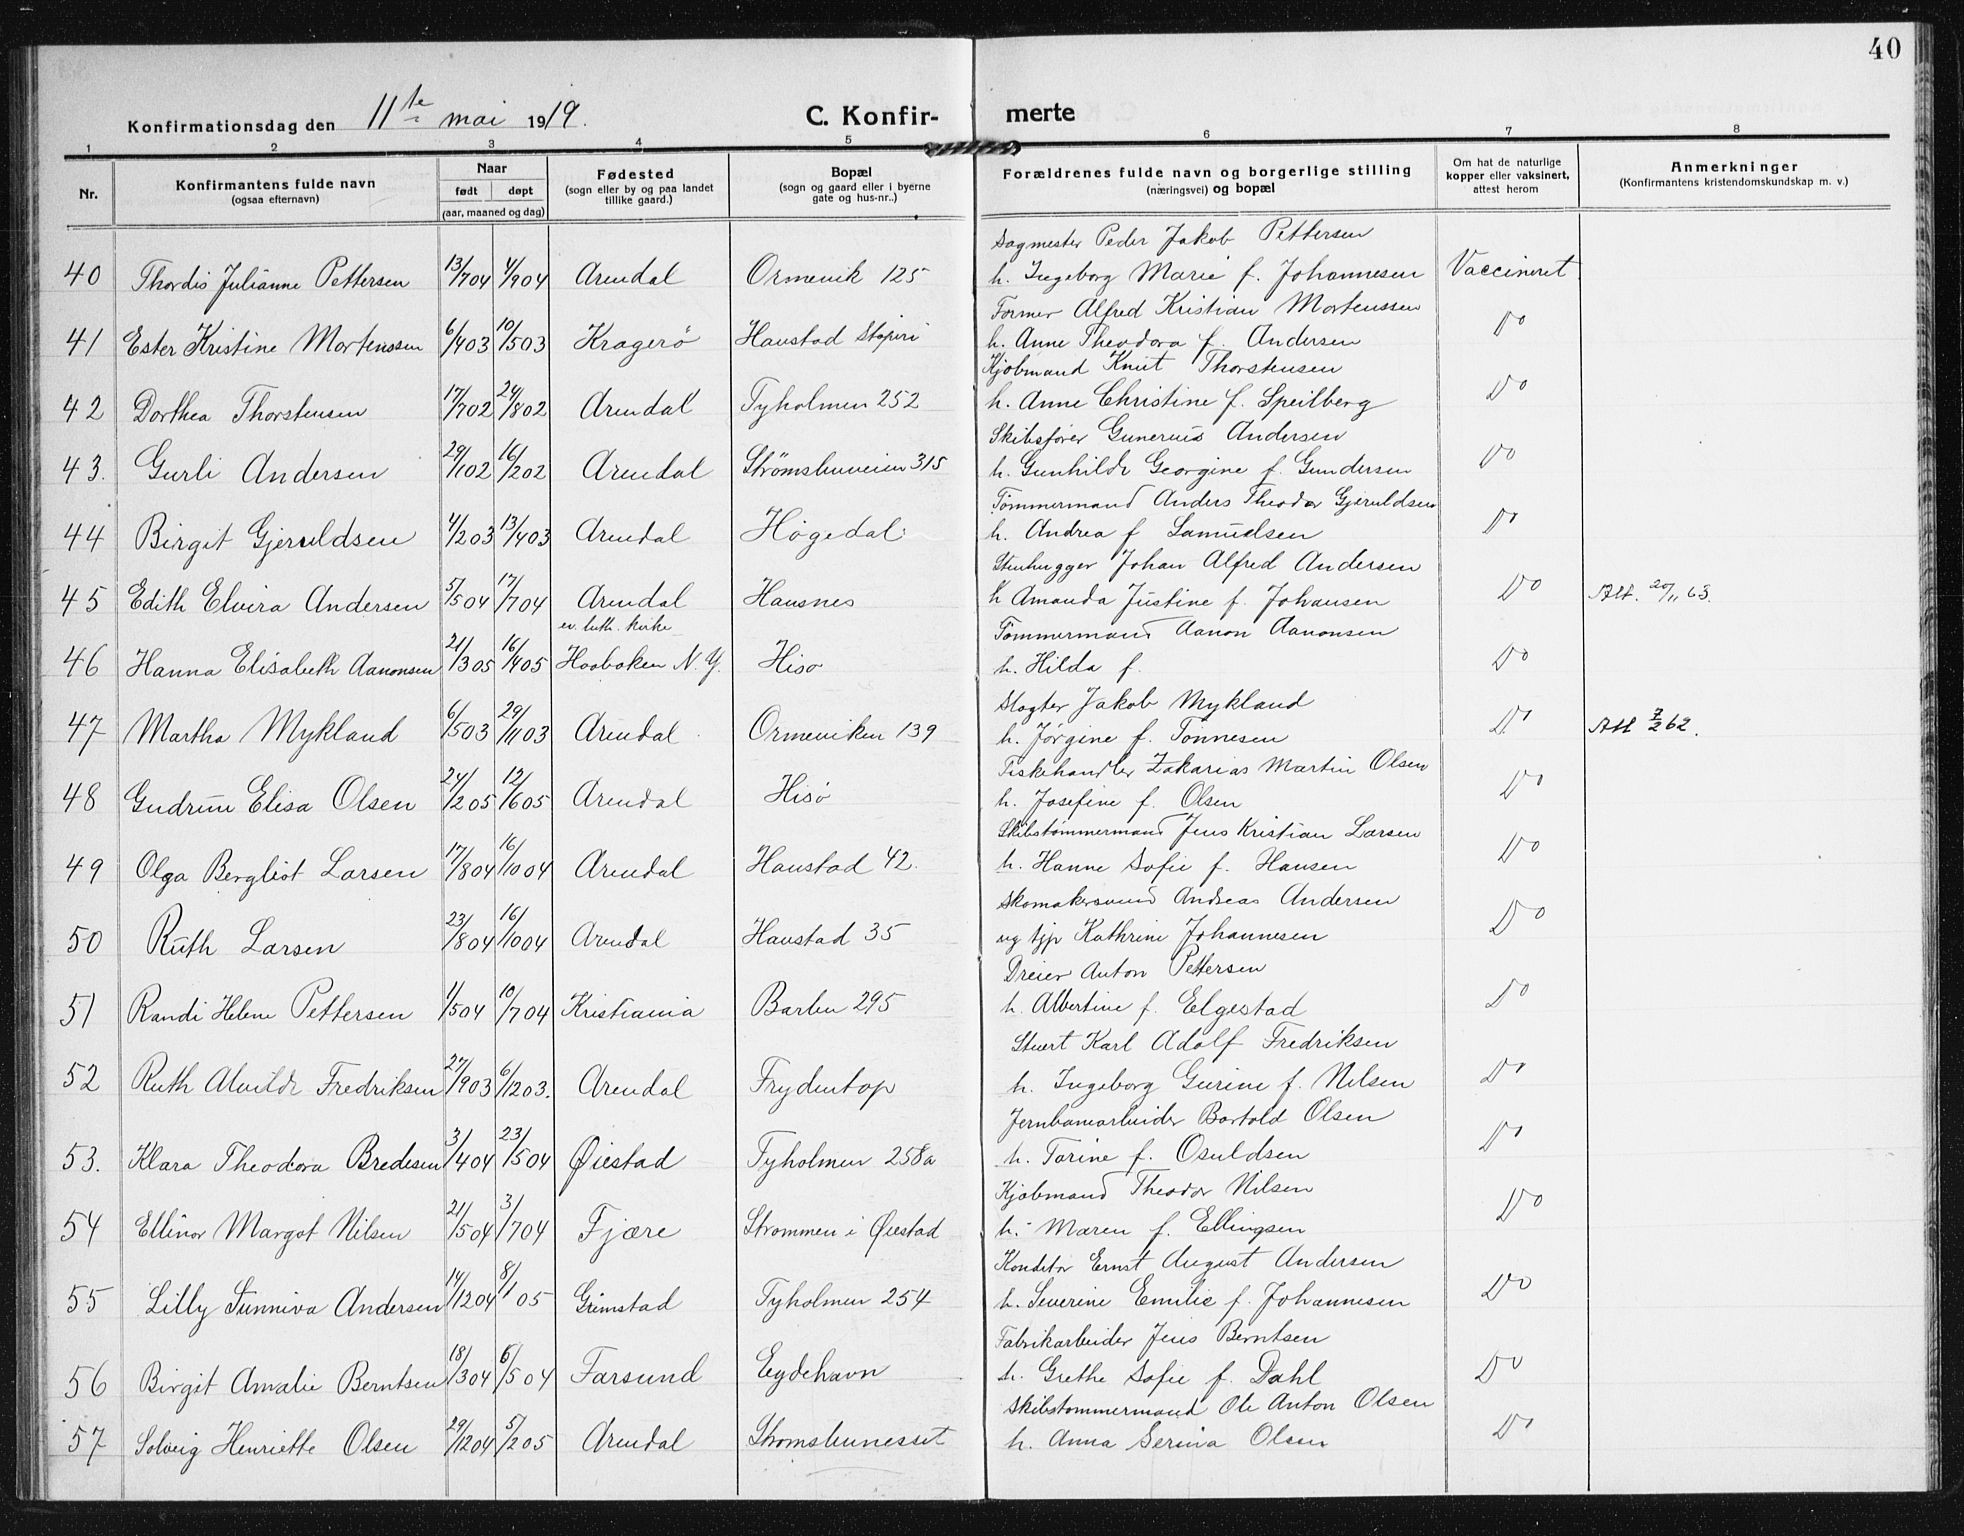 40
Konfirmationsdag den 11te mai 1919. C. Konfir- merte
1 2 3 4 5 6 7 8
Nr.
Konfirmantens fulde navn
(ogsaa efternavn)
Naar
født døpt
(aar, maaned og dag)
Fødested
(sogn eller by og paa landet
tillike gaard.)
Bopæl
(sogn og gaard eller i byerne
gate og hus-nr..)
Forældrenes fulde navn og borgerlige stilling
(næringsvei) og bopæl
Om hat de naturlige
kopper eller vaksinert,
attest herom
Anmerkninger
(Konfirmantens kristendomskundskap m. v.)
Sagmester Peder Jakob Pettersen
40 Thordis Julianne Pettersen 13/7 04 4/9 04 Arendal Ormevik 125 h. Ingeborg Marie f. Johannesen Vaccineret
Former Alfred Kristian Mortenssen
41 Ester Kristine Mortenssen 6/4 03 10/5 03 Kragerö Haustad h. Anne Theodora f. Andersen Do
Kjøbmand Knut Thorstensen
42 Dorthea Thorstensen 17/7 02 24/8 02 Arendal Tyholmen 252 h. Anne Christine f. Speilberg Do
Skibsfører Gunerius Andersen
43. Gurli Andersen 29/1 02 16/2 02 Arendal Strømsbuveien 315 h. Gunhilde Georgine f. Gundersen Do
Tømmermand Anders Theodor Gjeruldsen
44 Birgit Gjeruldsen 4/2 03 13/4 03 Arendal Høgedal h. Andrea f Samuelsen Do
Stenhugger Johan Alfred Andersen
45 Edith Elvira Andersen 5/5 04 17/7 04 Arendal Hausnes h Amanda Justine f. Johansen Do Att. 20/11 63.
ev. luth. kirke Tømmermand Aanon Aanonsen
46 Hanna Elisabeth Aanonsen 21/3 05 16/4 05 Hooboken N.Y. Hiso h. Hilda f. Do
Slagter Jakob Mykland
47 Martha Mykland 6/5 03 29/11 03 Arendal Ormeviken 139 h. Jørgine f. Tønnesen Do Att 7/2 62.
Fiskehandler Zakarias Martin Olsen
48 Gudrun Elisa Olsen 24/12 05 12/6 05 Arendal Hisø h. Josefine f. Olsen Do
Skibstømmermand Jens Kristian Larsen
49 Olga Bergliot Larsen 17/8 04 16/10 04 Arendal Haustad 42. h. Hanne Sofie f. Hansen Do
Skomakersvend Andreas Andersen
50 Ruth Larsen 23/8 04 16/10 04 Arendal Haustad 35 ug tjp Kathrine Johannesen Do
Dreier Anton Pettersen
51 Randi Helene Pettersen 1/5 04 10/7 04 Kristiania Barbu 295 h. Albertine f. Elgestad Do
Stuert Karl Adolf Fredriksen
52 Ruth Alvilde Fredriksen 27/9 03 6/12 03. Arendal Frydentop h. Ingeborg Gurine f. Nilsen Do
Jernbanearbeider Bartold Olsen
53. Klara Theodora Bredesen 3/4 04 23/5 04 Øiestad Tyholmen 258a h. Torine f. Osuldsen Do
Kjøbmand Theodor Nilsen
54 Ellinor Margot Nilsen 21/5 04 3/7 04 Fjære Strømmen i Øiestad h. Maren f. Ellingsen Do
Konditor Ernst August Andersen
55 Lilly Sunniva Andersen 14/12 04 8/1 05 Grimstad Tyholmen 254 h. Severine Emilie f. Johannesen Do
Fabrikarbeider Jens Berntsen
56 Birgit Amalie Berntsen 18/3 04 6/5 04 Farsund Eydehavn h. Grethe Sofie f. Dahl Do
Skibstømmermand Ole Anton Olsen
57 Solveig Henriette Olsen 29/12 04 5/2 05 Arendal Strømsbunesset h. Anna Serina Olsen Do